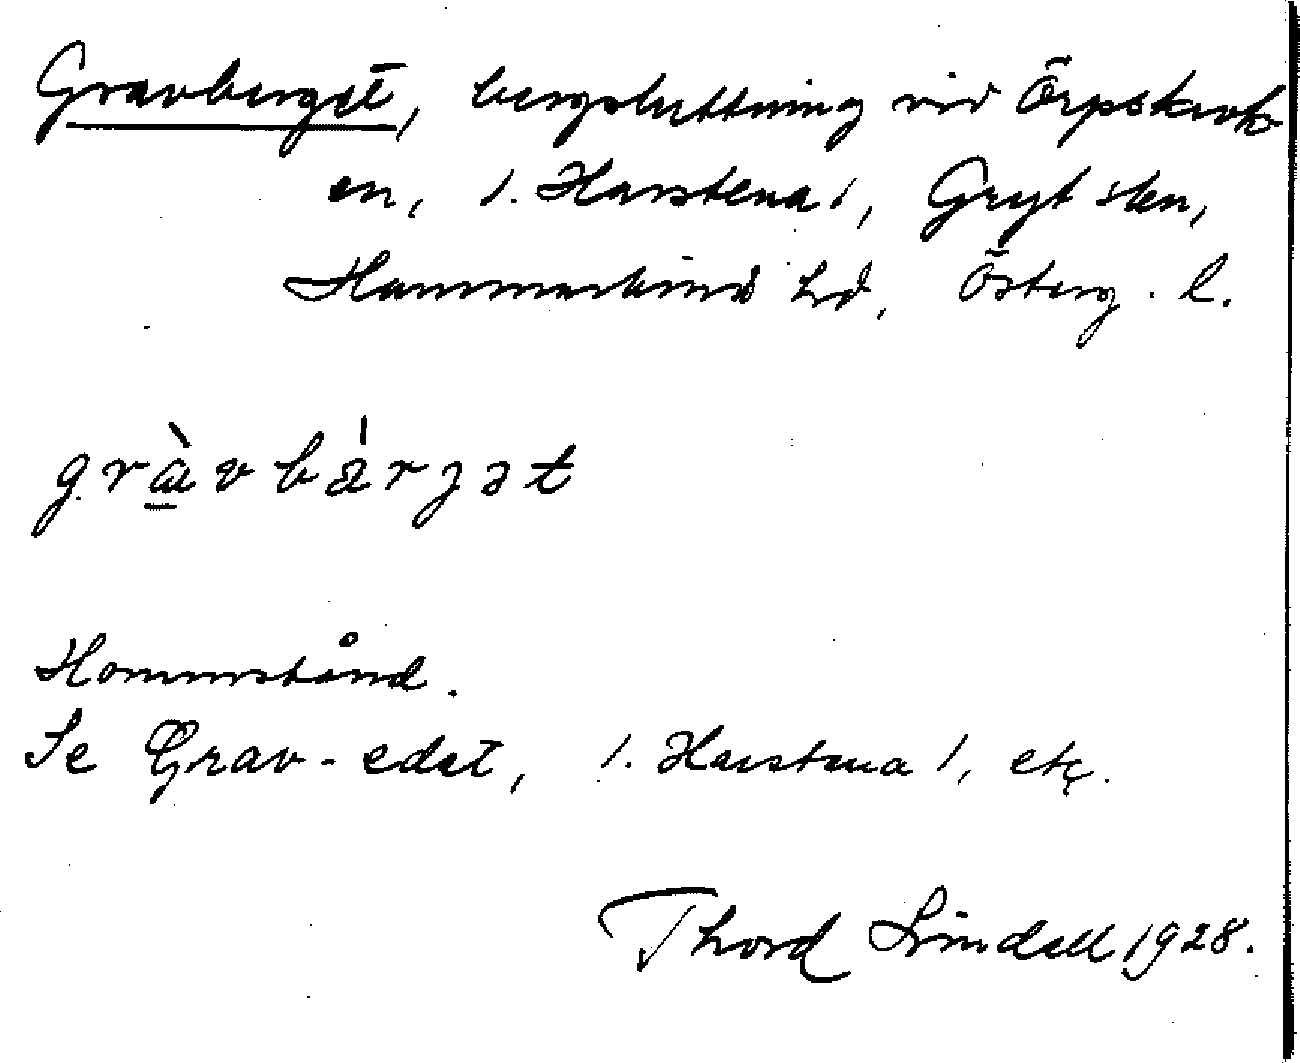 Gravberget, bergsluttning vid Örpskroken, 1. Harstena 1, Gryt skn,
Hammarkind hd, Österg. l.
gràvbärgət
Hommstånd.
Se Grav-edet, 1. Harstena 1, etc.
Thord Lindell 1928.